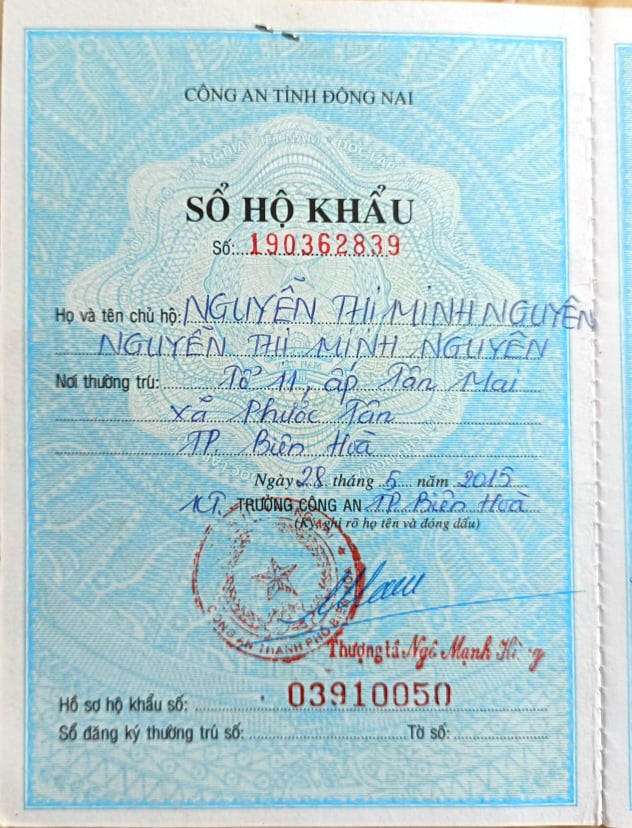 CÔNG AN TỈNH ĐỒNG NAI
SỔ HỘ KHẨU
Số: 190362839
Họ và tên chủ hộ: NGUYỄN THỊ MINH NGUYÊN
NGUYỄN THỊ MINH NGUYÊN
Nơi thường trú: Tổ 11, ấp Tân Mai
Xã Phước Tân
TP. Biên Hoà
Ngày 28 tháng 5 năm 2015
KT. TRƯỞNG CÔNG AN TP. Biên Hoà
(Ký, ghi rõ họ tên và đóng dấu)
CÔNG AN THÀNH PHỐ BIÊN HÒA
Thượng tá Ngô Mạnh
Hồ sơ hộ khẩu số: 03910050
Sổ đăng ký thường trú số: Tờ số: